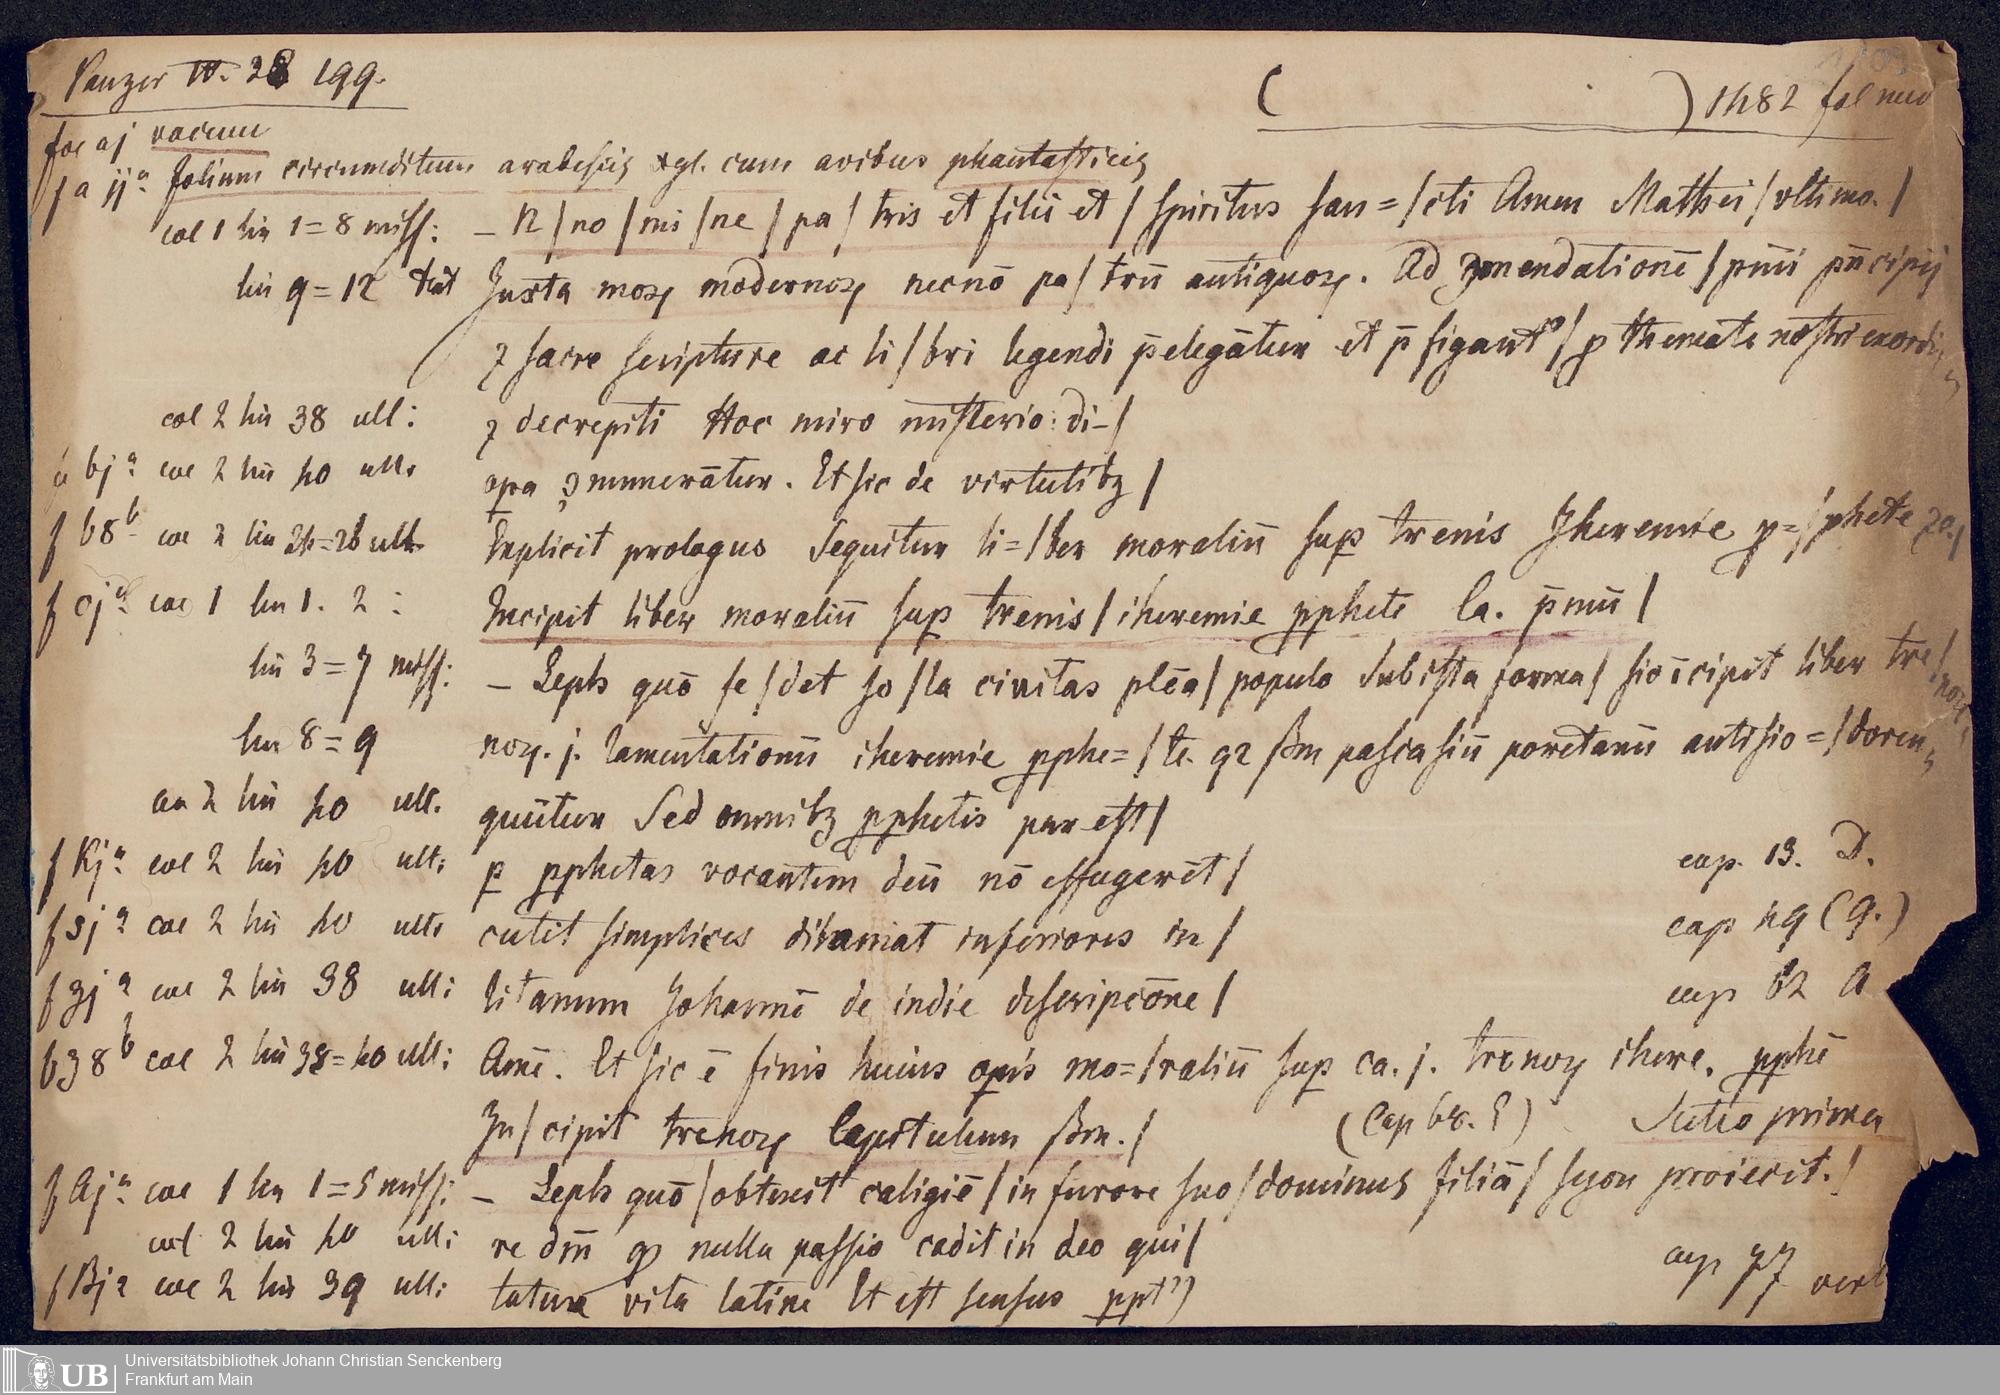 Panzer IV. 38 199.
( ) 1482 fol
fol aj vacuum
f a ij a folium circumditum arabescis xgl. cum avibus phantasticis
col 1 lin 1=8 miss: – N/no/mi/ne/pa/tris et filii et/spiritus san=/cti Amen Mathei/vltimo./
lin 9=12 Juxta moꝝ modernoꝝ necnō pa/trū antiquoꝝ. Ad ꝯmendationē/pmi pncipij
ꝛ sacre scripture ac li/bri legendi p̄elegātur et p̄figant'/ꝑ themate nostri exordij
col 2 lin 38 ult: ꝛ decrepiti Hoc miro misterio: di–/
bj a col 2 lin 40 ult. opa ꝯnumerātur. Et sic de virtutibꝫ/
f b8 b col 2 lin 24=26 ult. Explicit prologus Sequitur li=/ber moraliū sup trenis Jheremie p=/phete
f cj a col 1 lin 1. 2: Incipit liber moraliū sup trenis/iheremie pphete Ca. p̄mū/
lin 3=7 miss: – Leph quō se/det so/la civitas plēa/populo Sub ista forma/sic īcipit liber tre/
lin 8=9 noꝝ. j. lamentationū iheremie pphe=/te. qꝛ ßm pascasiū poretanū antisio=/doren
col 2 lin 40 ult. quūtur Sed omnibꝫ pphetis par est/
f Kj a col 2 lin 40 ult: p pphetas vocantem deū nō effugerēt/ cap. 13. D.
f sj a col 2 lin 40 ult. cutit simplices dilaniat inferiores in/ cap 49 (q.)
f zj a col 2 lin 38 ult: litanum Johannē de indie descripcōne/ cap 62 A
b38 b col 2 lin 38=40 ult: Amē. Et sic ē finis huius opis mo=/raliū sup ca. j. trenoꝝ ihere. pphē
In/cipit trenoꝝ Capitulum ßm./ (Cap 68. ) prima
f Aj a col 1 lin 1=5 miss: – Leph quō/obtexit caligiē/in furore suo/dominus filiā/syon proiecit./
col 2 lin 40 ult: re dm̄ ꝙ nulla passio cadit in deo qui/ cap 77
f Bj a col 2 lin 39 ult: tature vita latine Et est sensus ppt'/
Universitätsbibliothek Johann Christian Senckenberg
UB Frankfurt am Main